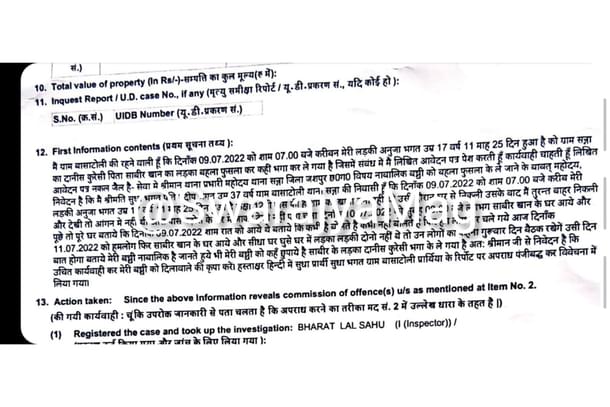 सं.)
10. Total value of property (In Rs/-)-सम्पति का कुल मूल्य(रु में):
11. Inquest Report / U.D. case No., if any (मृत्यु समीक्षा रिपोर्ट / यू.डी.प्रकरण सं., यदि कोई हो):
S.No. (क्र.सं.) UIDB Number (यू.डी.प्रकरण सं.)
12. First Information contents (प्रथम सूचना तथ्य):
मै ग्राम बासाटोली की रहने वाली हूँ कि दिनाँक 09.07.2022 को शाम 07.00 बजे करीबन मेरी लड़की अनुजा भगत उम्र 17 वर्ष 11 माह 25 दिन हुआ है को ग्राम सन्ना
का दानीस कुरेसी पिता साबीर खान का लड़का बहला फुसला कर कही भगा कर ले गया है जिसमे संबंध मे मै लिखित आवेदन पत्र पेश करती हूँ कार्यवाही चाहती हूँ लिखित
आवेदन पत्र नकल जैल है- सेवा मे श्रीमान थाना प्रभारी महोदय थाना सन्ना जिला जशपुर छ0ग0 विषय नाबालिक बच्ची को बहला फुसला के ले जाने के बावत् महोदय,
निवेदन है कि मै श्रीमति सुधा भगत उम्र 37 वर्ष ग्राम बासाटोली थाना सन्ना की निवासी हूँ कि दिनांक 09.07.2022 को शाम 07.00 बजे करीब मेरी
लड़की अनुजा भगत उम्र घर से निकली उसके बाद मै तुरन्त बाहर निकली
@Swarajya Mag
और देखी तो आंगन मे नही साबीर खान के घर आये और
पूछे तो पूरे घर बताये कि दिनांक 09.07.2022 शाम रात को आये थे बताये कि चले गये आज दिनाँक
11.07.2022 को हमलोग फिर साबीर खान के घर आये और सीधा घर घुसे घर मे लड़का लड़की दोनो नही थे तो उन लोगों का कहना गुरूवार दिन बैठक रखेगे उसी दिन
बात होगा बताये मेरी बच्ची नाबालिक है जानते हुये भी मेरी बच्ची को कहाँ छुपाये है साबीर के लड़का दानीस कुरेसी भगा के ले गया है अतः श्रीमान जी से निवेदन है कि
उचित कार्यवाही कर मेरी बच्ची को दिलावाने की कृपा करे। हस्ताक्षर हिन्दी में सुधा प्रार्थी सुधा भगत ग्राम बासाटोली प्रार्थिया के रिर्पोट पर अपराध पंजीबद्ध कर विवेचना में
लिया गया।
13. Action taken: Since the above Information reveals commission of offence(s) u/s as mentioned at Item No. 2.
(की गयी कार्यवाही : चूकि उपरोक जानकारी से पता चलता है कि अपराध करने का तरीका मद सं. 2 में उल्लेख धारा के तहत है।)
(1) Registered the case and took up the investigation: BHARAT LAL SAHU (I (Inspector)) /
लिया गया ):